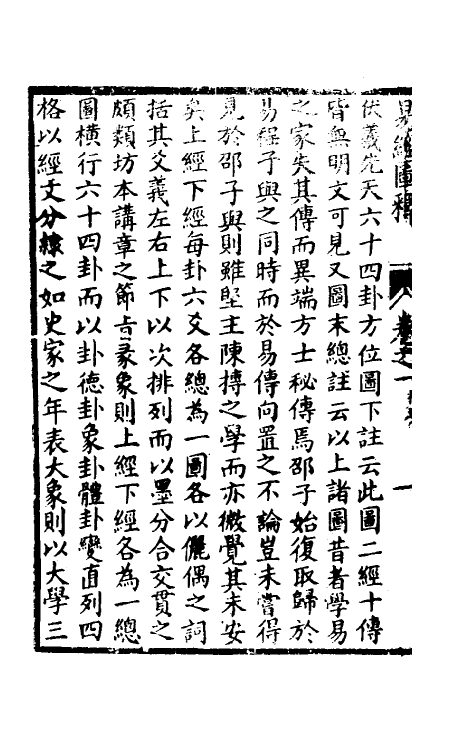 易經圖釋
伏羲先天六十四卦方位圖下註云此圖二經十傳
皆無明文可見又圖末總註云以上諸圖昔者學易
之家失其傳而異端方士秘傳焉邵子始復取歸於
易程子與之同時而於易傳向置之不論豈未嘗得
見於邵子與則雖堅主陳摶之學而亦微覺其未安
矣上經下經每卦六爻各總為一圖各以儷偶之詞
括其爻義左右上下以次排列而以墨分合交貫之
頗類坊本講章之節旨彖象則上經下經各為一總
圖橫行六十四卦而以卦德卦象卦體卦變直列四
格以經文分隸之如史家之年表大象則以大學三